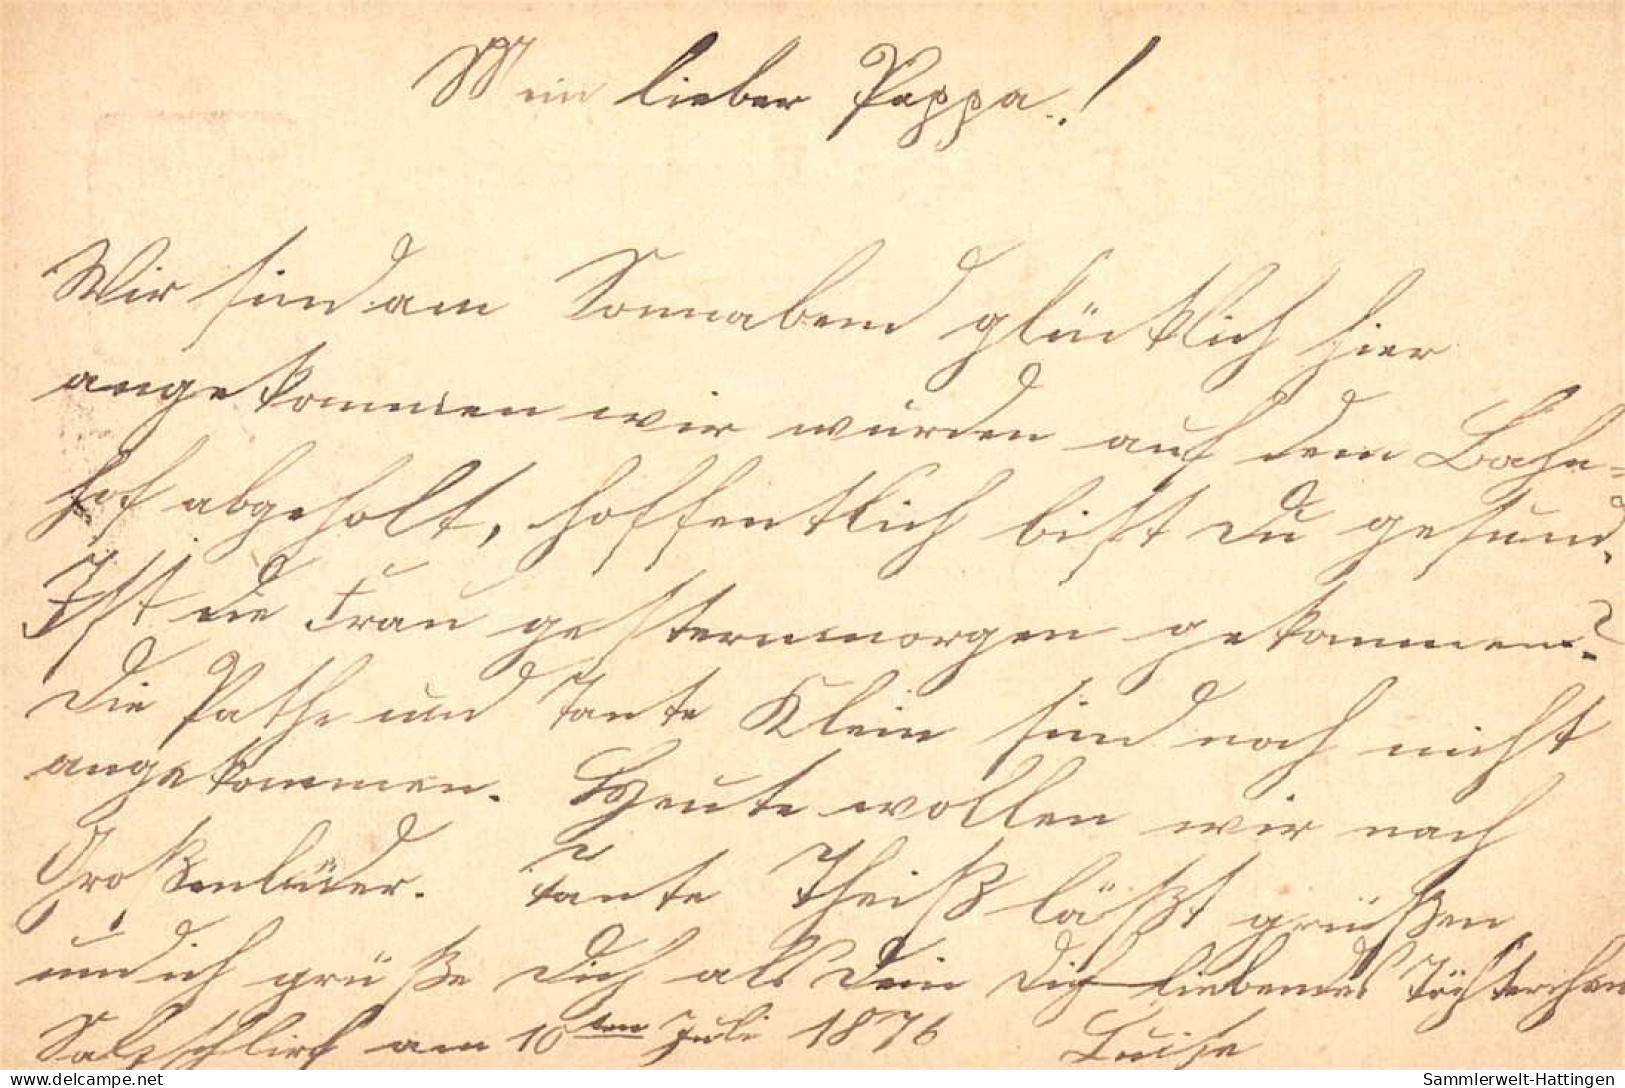 Mein lieber Pappa!
Wir sind am Sonnabend glücklich hier
angekommen wir wurden auf dem Bahn-
hof abgeholt, hoffentlich bist Du gesund.
Ist die Frau gesternmorgen gekommen?
Die Pathe und Tante Klein sind noch nicht
angekommen. Heute wollen wir nach
Großenlüder. Tante Theiß läßt grüßen
und ich grüße Dich als Dein Dich liebendes Töchterchen
Salzschlirf am 10ten Juli 1876 Luise
delcampe.net
Sammlerwelt-Hattingen